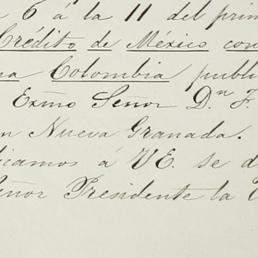 6 á la 11 del prim
Crédito de México con
na Colombia publi
Exmo Señor Dn F.
n Nueva Granada.
icamos á VE. se d
eñor Presidente la